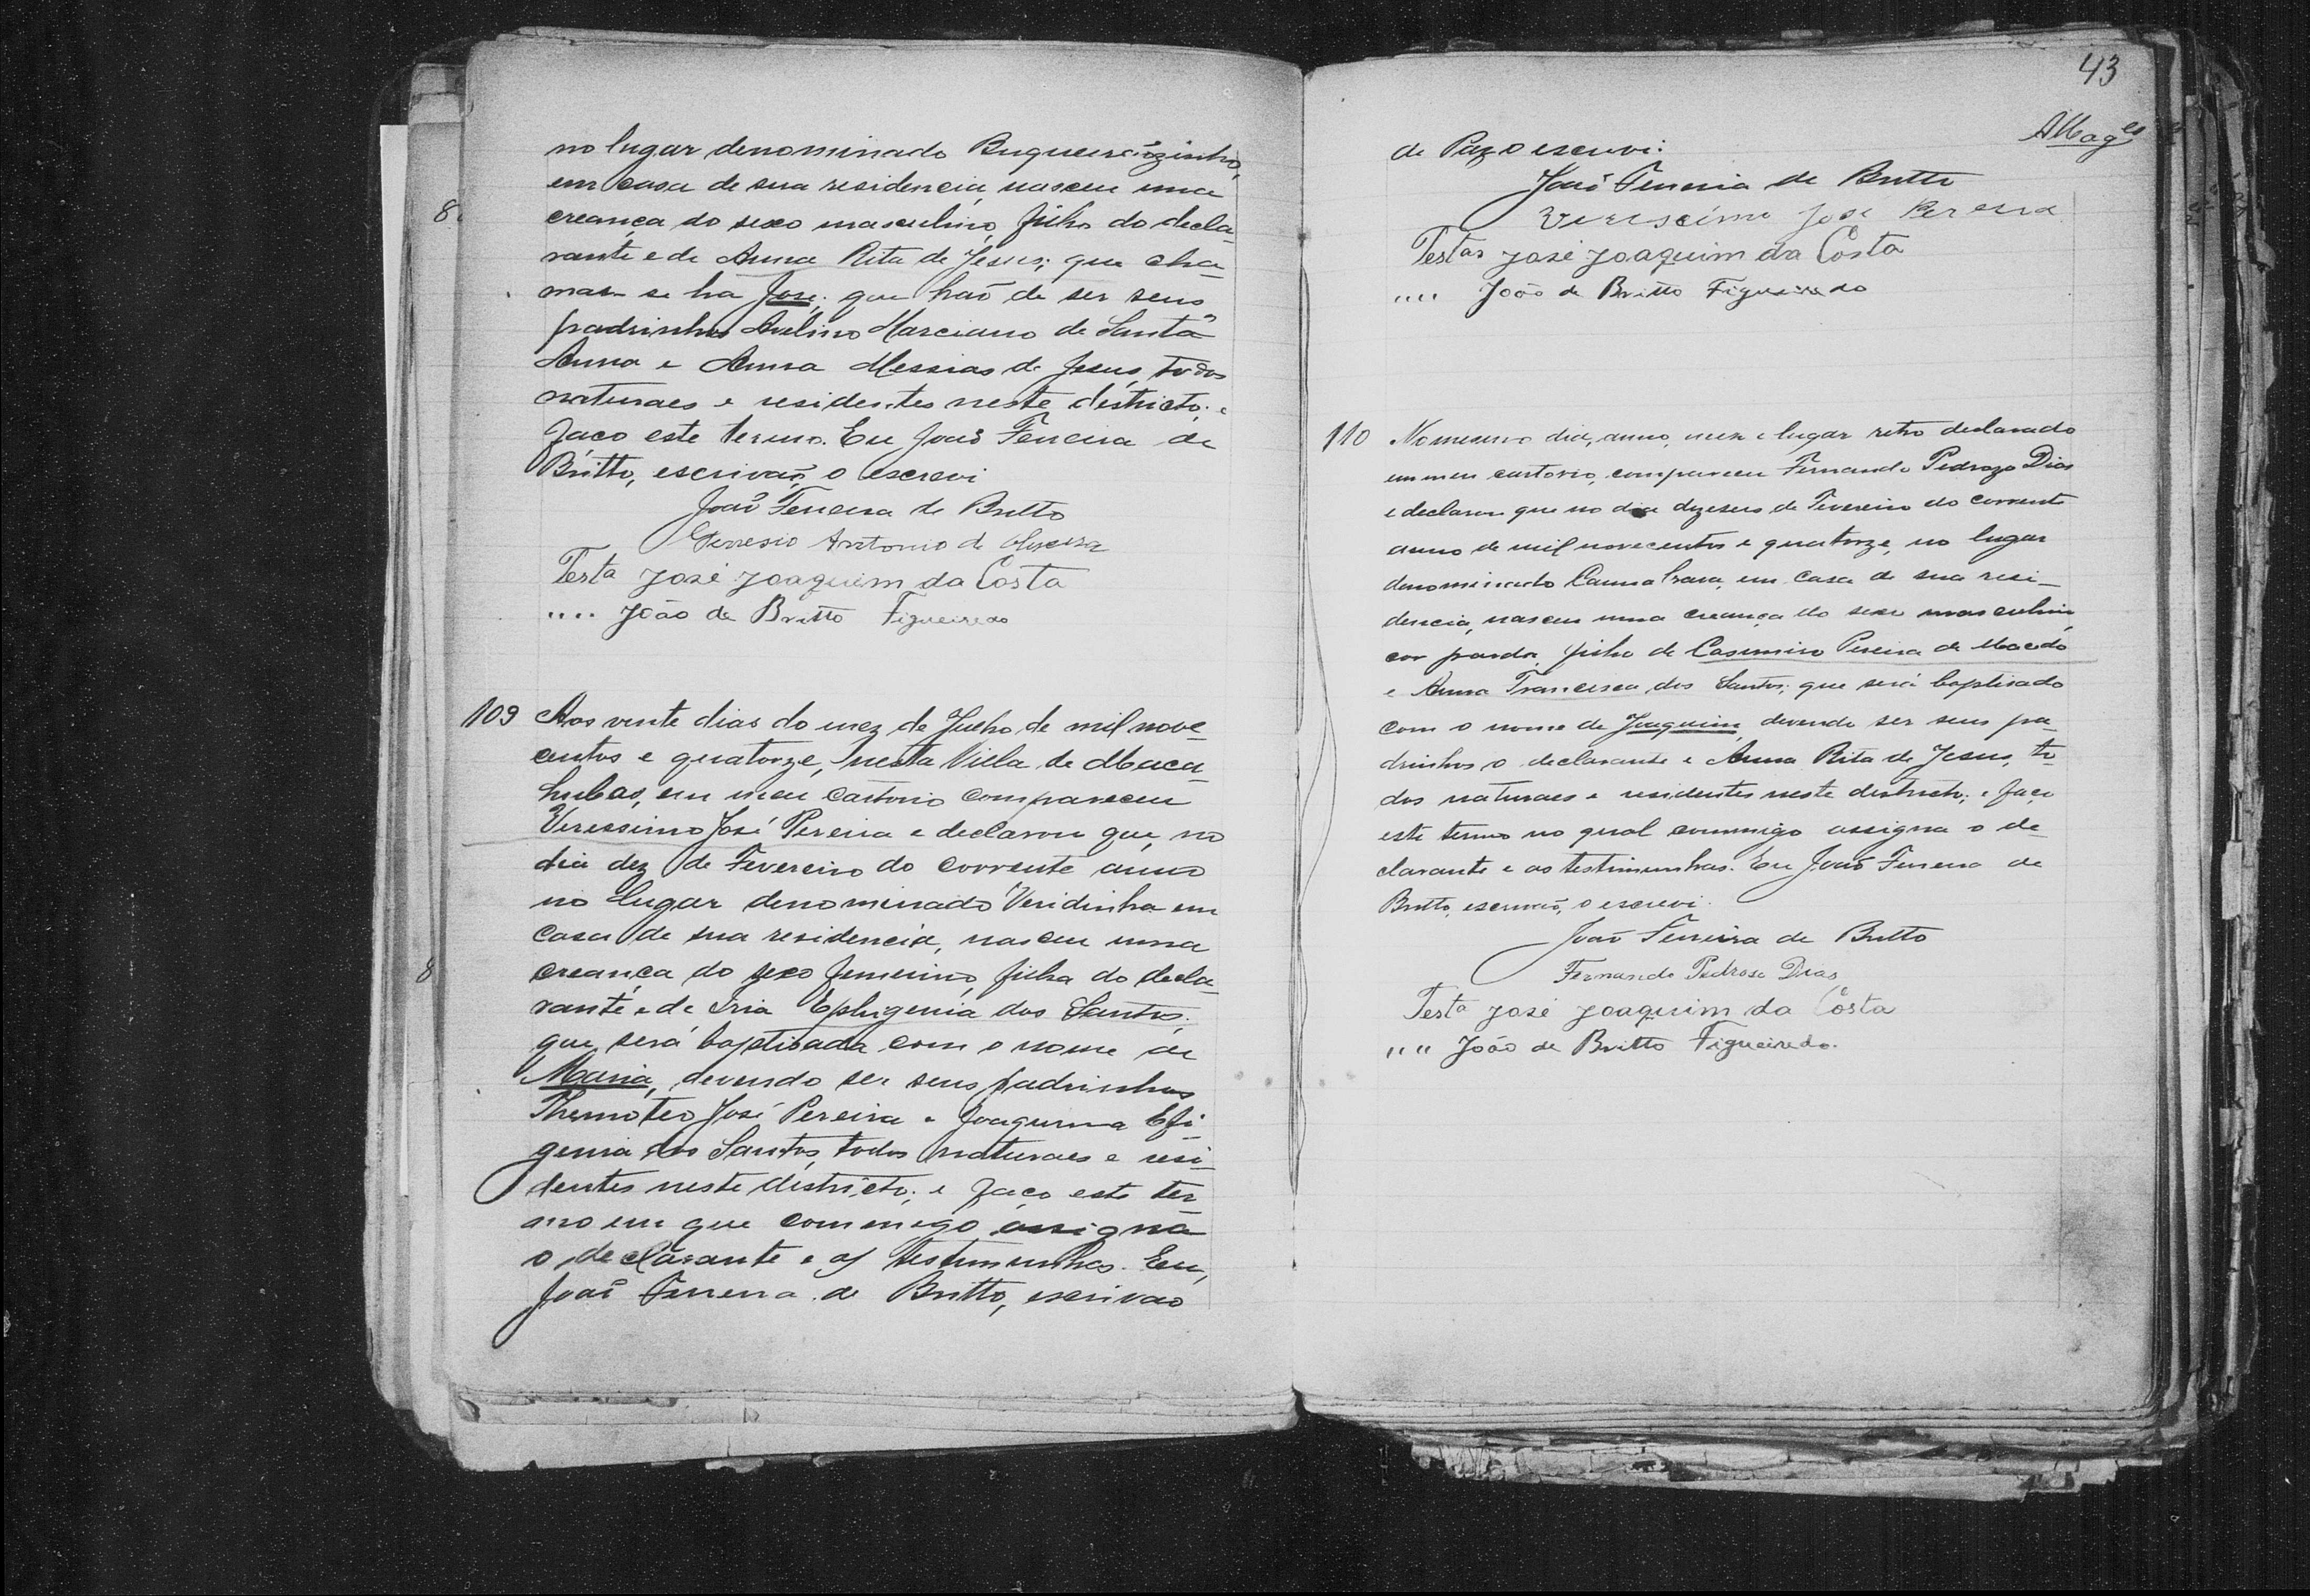 no lugar denominado Buqueirãozinho,
em casa de sua residencia, nasceu uma
creança do sexo masculino, filho do decla-
rante e de Anna Rita de Jesus; que cha-
mar-se ha José; que haõ de ser seus
padrinhos Avelino Marciano de Santa
Anna e Anna Messias de Jesus, todos
naturaes e residentes neste districto; e
faço este termo. Eu Joaõ Ferreira de
Britto, escrivaõ, o escrevi
Joaõ Ferreira de Britto
Antonio de Oliveira
Testa José Joaquim da Costa
'''' João de Britto Figueiredo
109 Aos vinte dias do mez de Julho de mil nove-
centos e quatorze, nesta Villa de Maca-
hubas, em meu cartorio compareceu
Veressimo José Pereira e declarou que, no
dia dez de Fevereiro do corrente anno
no lugar denominado Veridinha em
casa de sua residencia, nasceu uma
creança do sexo femenino, filha do decla-
rante e de Iria Ephigenia dos Santos;
que será baptisada com o nome de
Maria, devendo ser seus padrinhos
Themoteo José Pereira e Joaquina Efi-
genia dos Santos, todos naturaes e resi-
dentes neste districto; e faço este ter-
mo em que commigo assigna
o declarante e as testimunhas. Eu,
Joaõ Ferreira de Britto, escrivao
43
de Paz o escrevi.
Joaõ Ferreira de Britto
Verescimo José Pereira
Testas José Joaquim da Costa
'''' João de Britto Figueiredo
110 No mesmo dia, anno, mez e lugar retro declarado
em meu cartorio, compareceu Fernando Pedrozo Dias
e declarou que no dia dezeseis de Fevereiro do corrente
anno de mil novecentos e quatorze, no lugar
denominado Canna brava, em casa de sua resi-
dencia, nasceu uma creança do sexo masculino,
cor parda, filho de Casemiro Pereira de Macedo
e Anna Francisca dos Santos; que será baptisado
com o nome de Joaquim, devendo ser seus pa-
drinhos o declarante e Anna Rita de Jesus, to-
dos naturaes e residentes neste districto; e faço
este termo no qual commigo assigna o de-
clarante e as testimunhas. Eu Joaõ Ferreira de
Britto, escrivaõ, o escrevi.
Joaõ Ferreira de Britto
Fernando Pedroso Dias
Testa José Joaquim da Costa
'''' João de Britto Figueiredo.